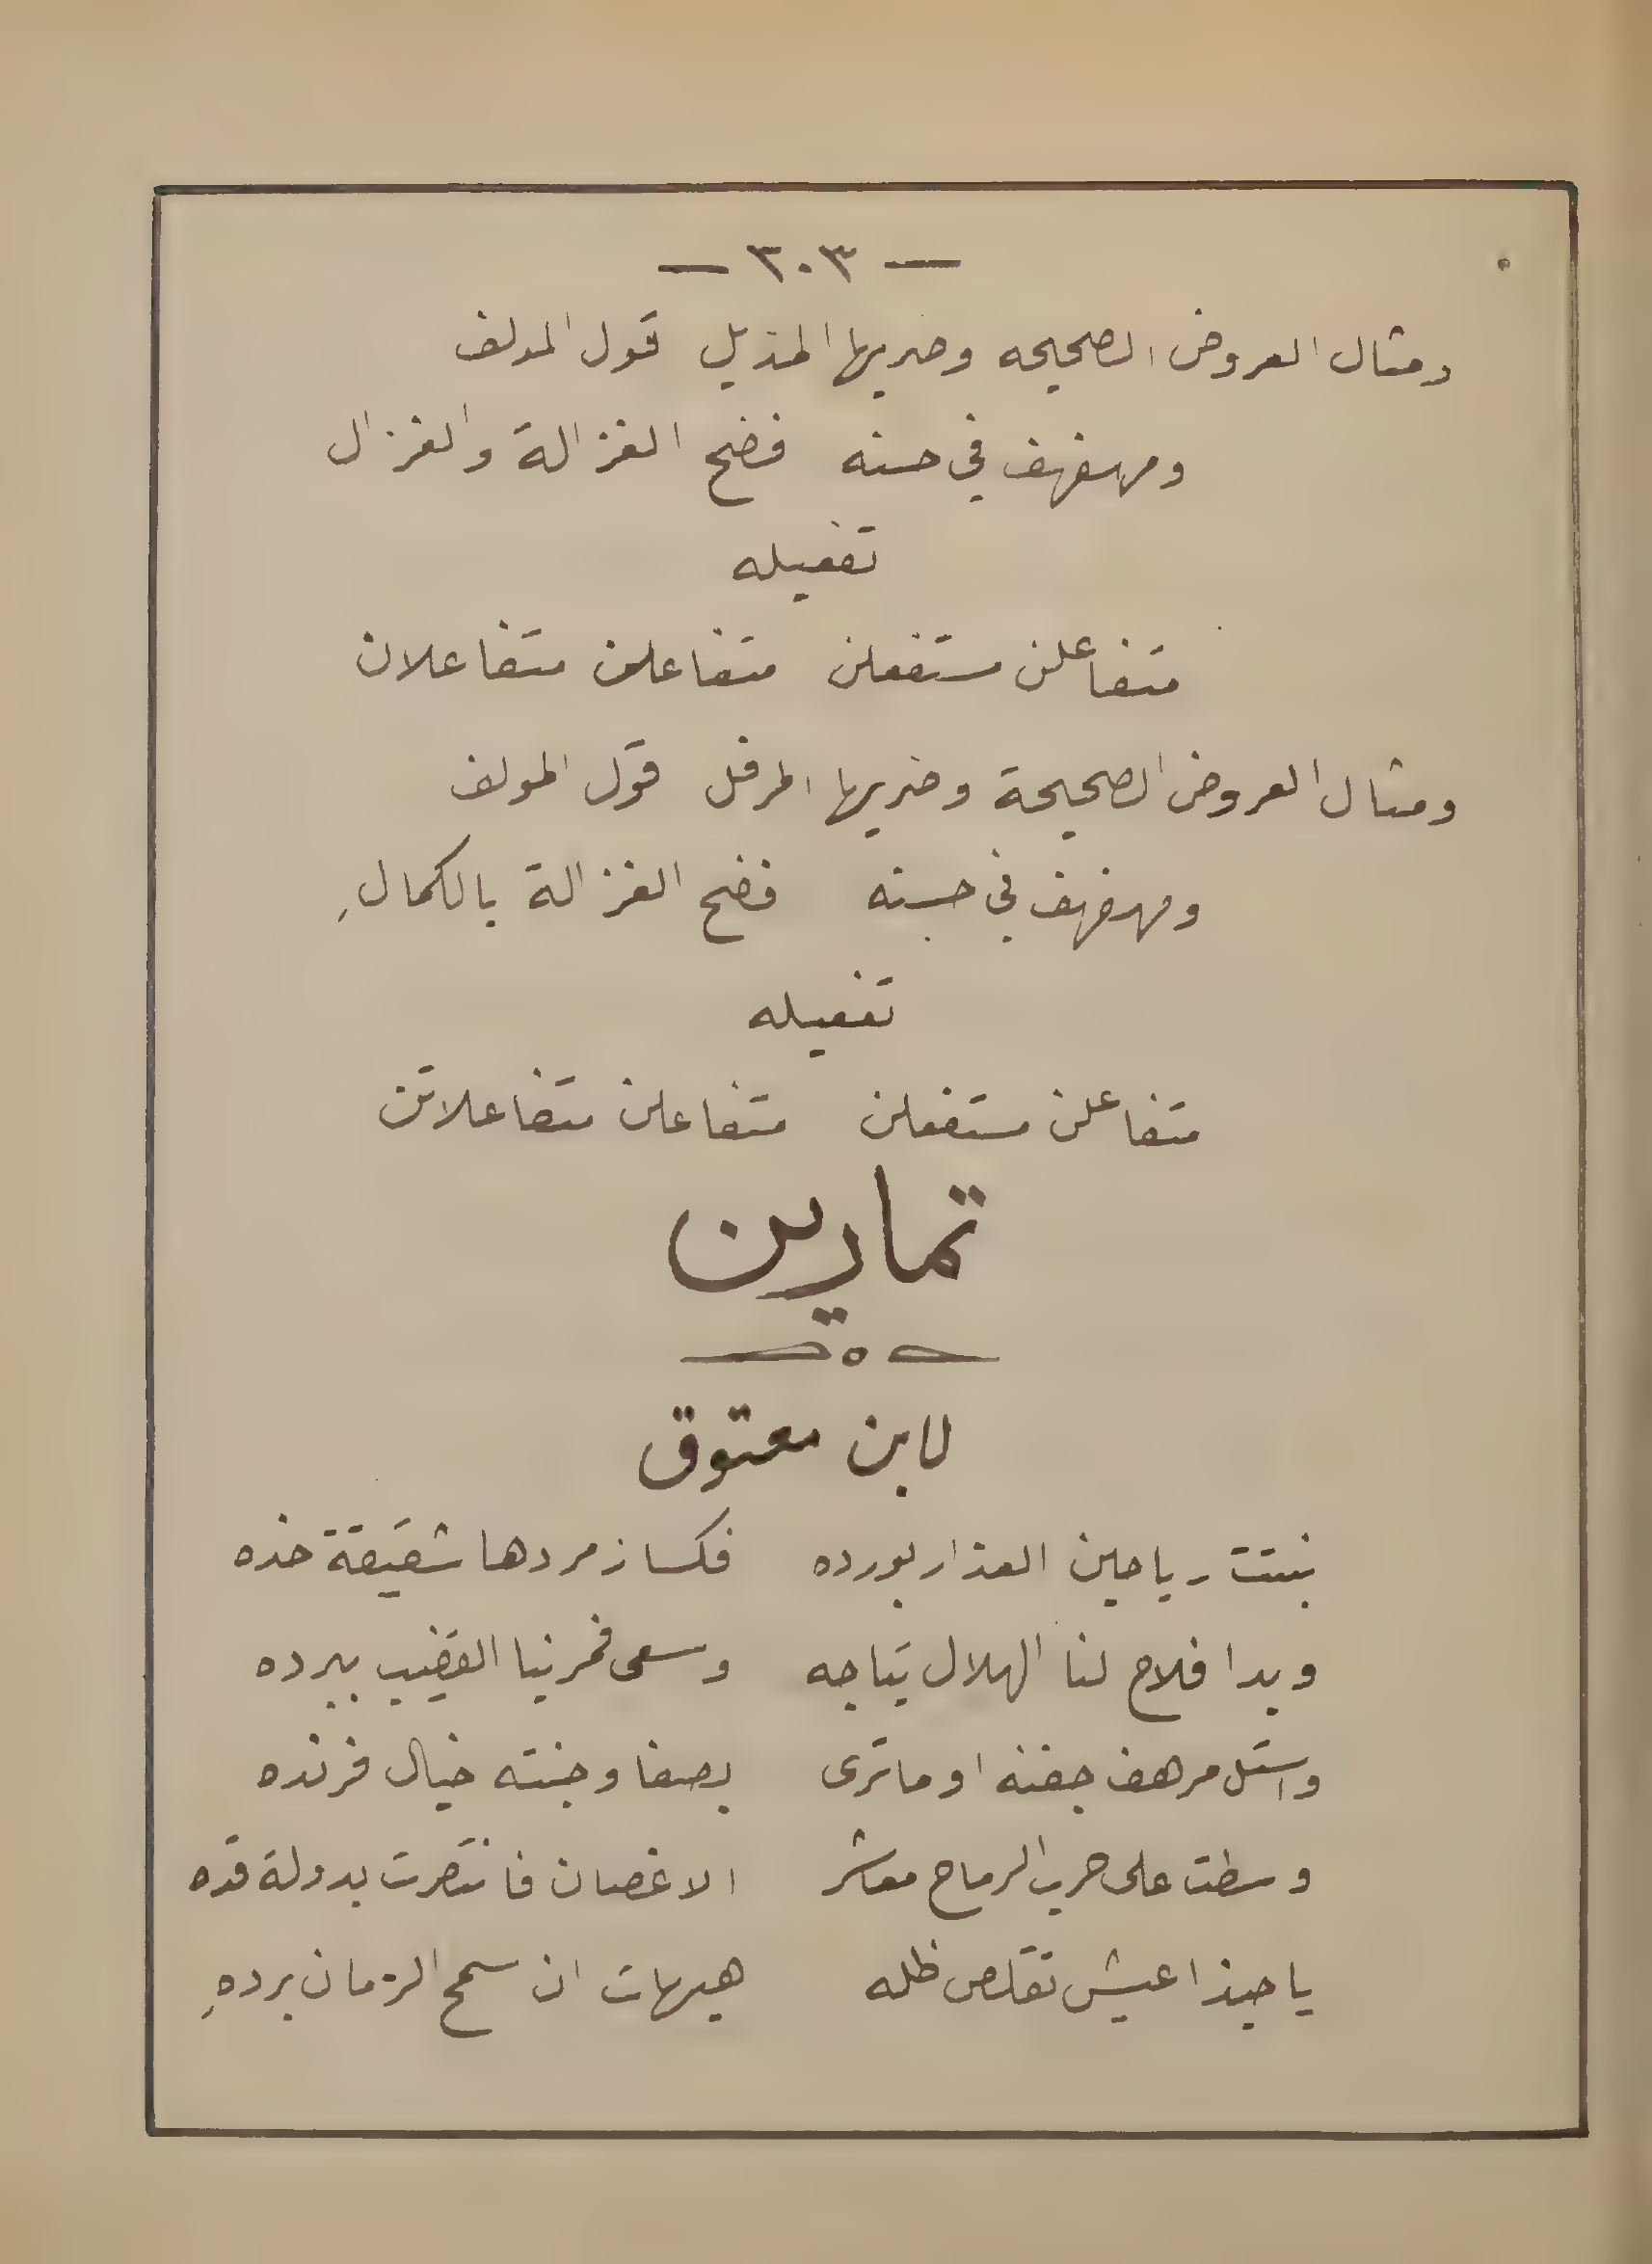 — ٣٠٣ —
ومثال العروض الصحيحه وضربها المذيل قول المولف
ومهفهف في حسنه فضح الغزالة والغزال
تفعيله
متفاعلن مستفعلن متفاعلن متفاعلان
ومثال العروض الصحيحة وضربها المرفل قول المولف
ومهفهف في حسنه فضح الغزالة بالكمالِ
تفعيله
متفاعلن مستفعلن متفاعلن متفاعلاتن
تمارين
لابن معتوق
نبتت رياحين العذار بورده فكسا زمردها شقيقة خده
وبدا فلاح لنا الهلال بتاجه وسعى فمر بنا القضيب ببرده
واستل مرهف جفنه اوما ترى بصفا وجنته خيال فرنده
وسطت على حرب الرماح معاشر الاغصان فانتصرت بدولة قده
يا حبذا عيش تقلص ظله هيهات ان سمح الزمان بردهِ